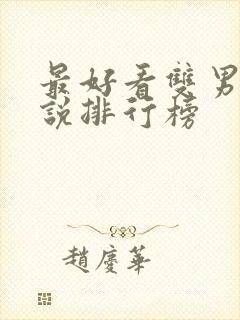 最好看雙男
說排行榜
趙慶華